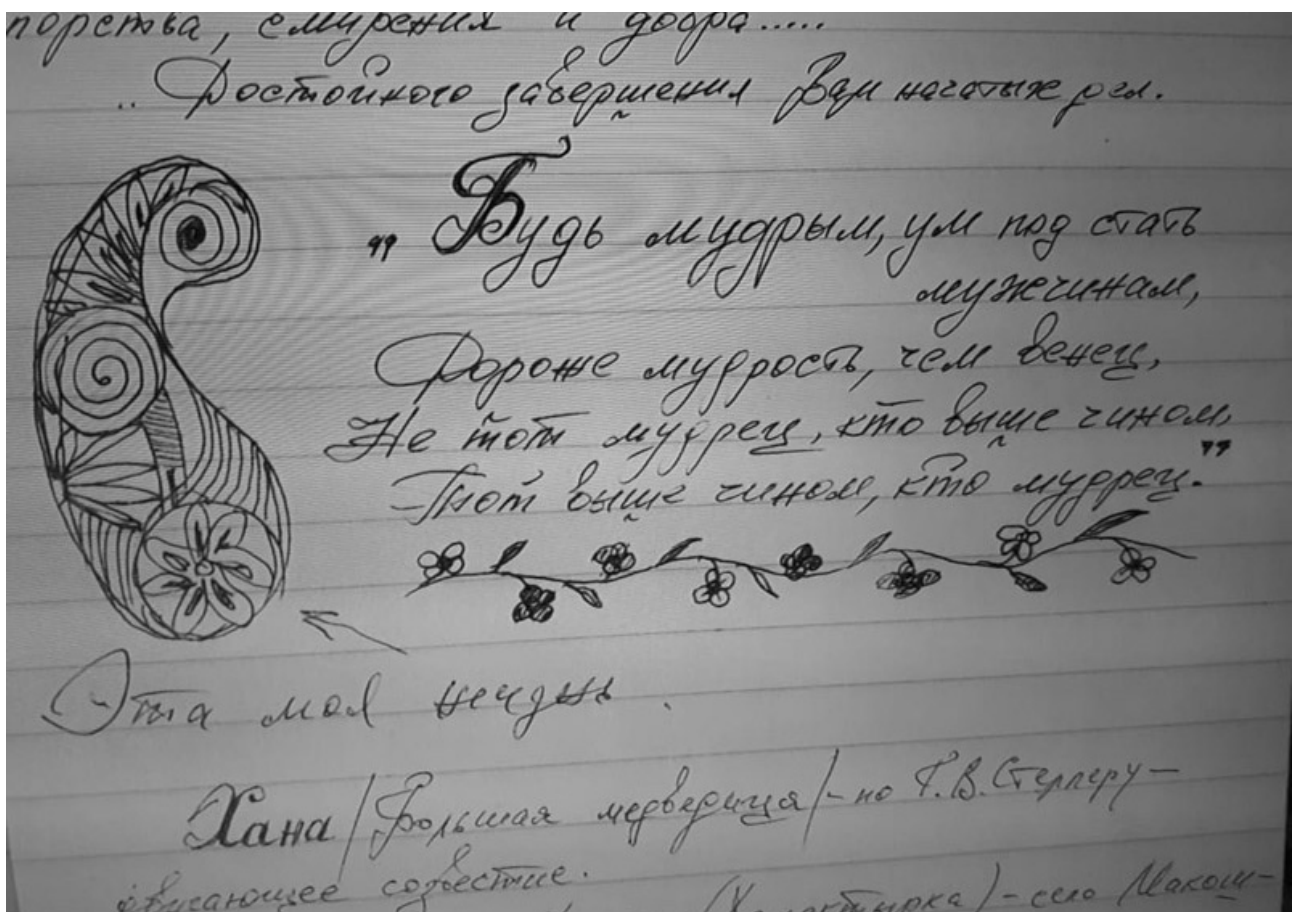 порства, смирения и добра.....
.. Достойного завершения Вам начатых дел.
„ Будь мудрым, ум под стать
мужчинам,
Дороже мудрость, чем венец,
Не тот мудрец, кто выше чином,
Тот выше чином, кто мудрец."
Эта моя жизнь.
Хана /Большая медведица/ - по Г.В.
созвестие.
- село Макош-